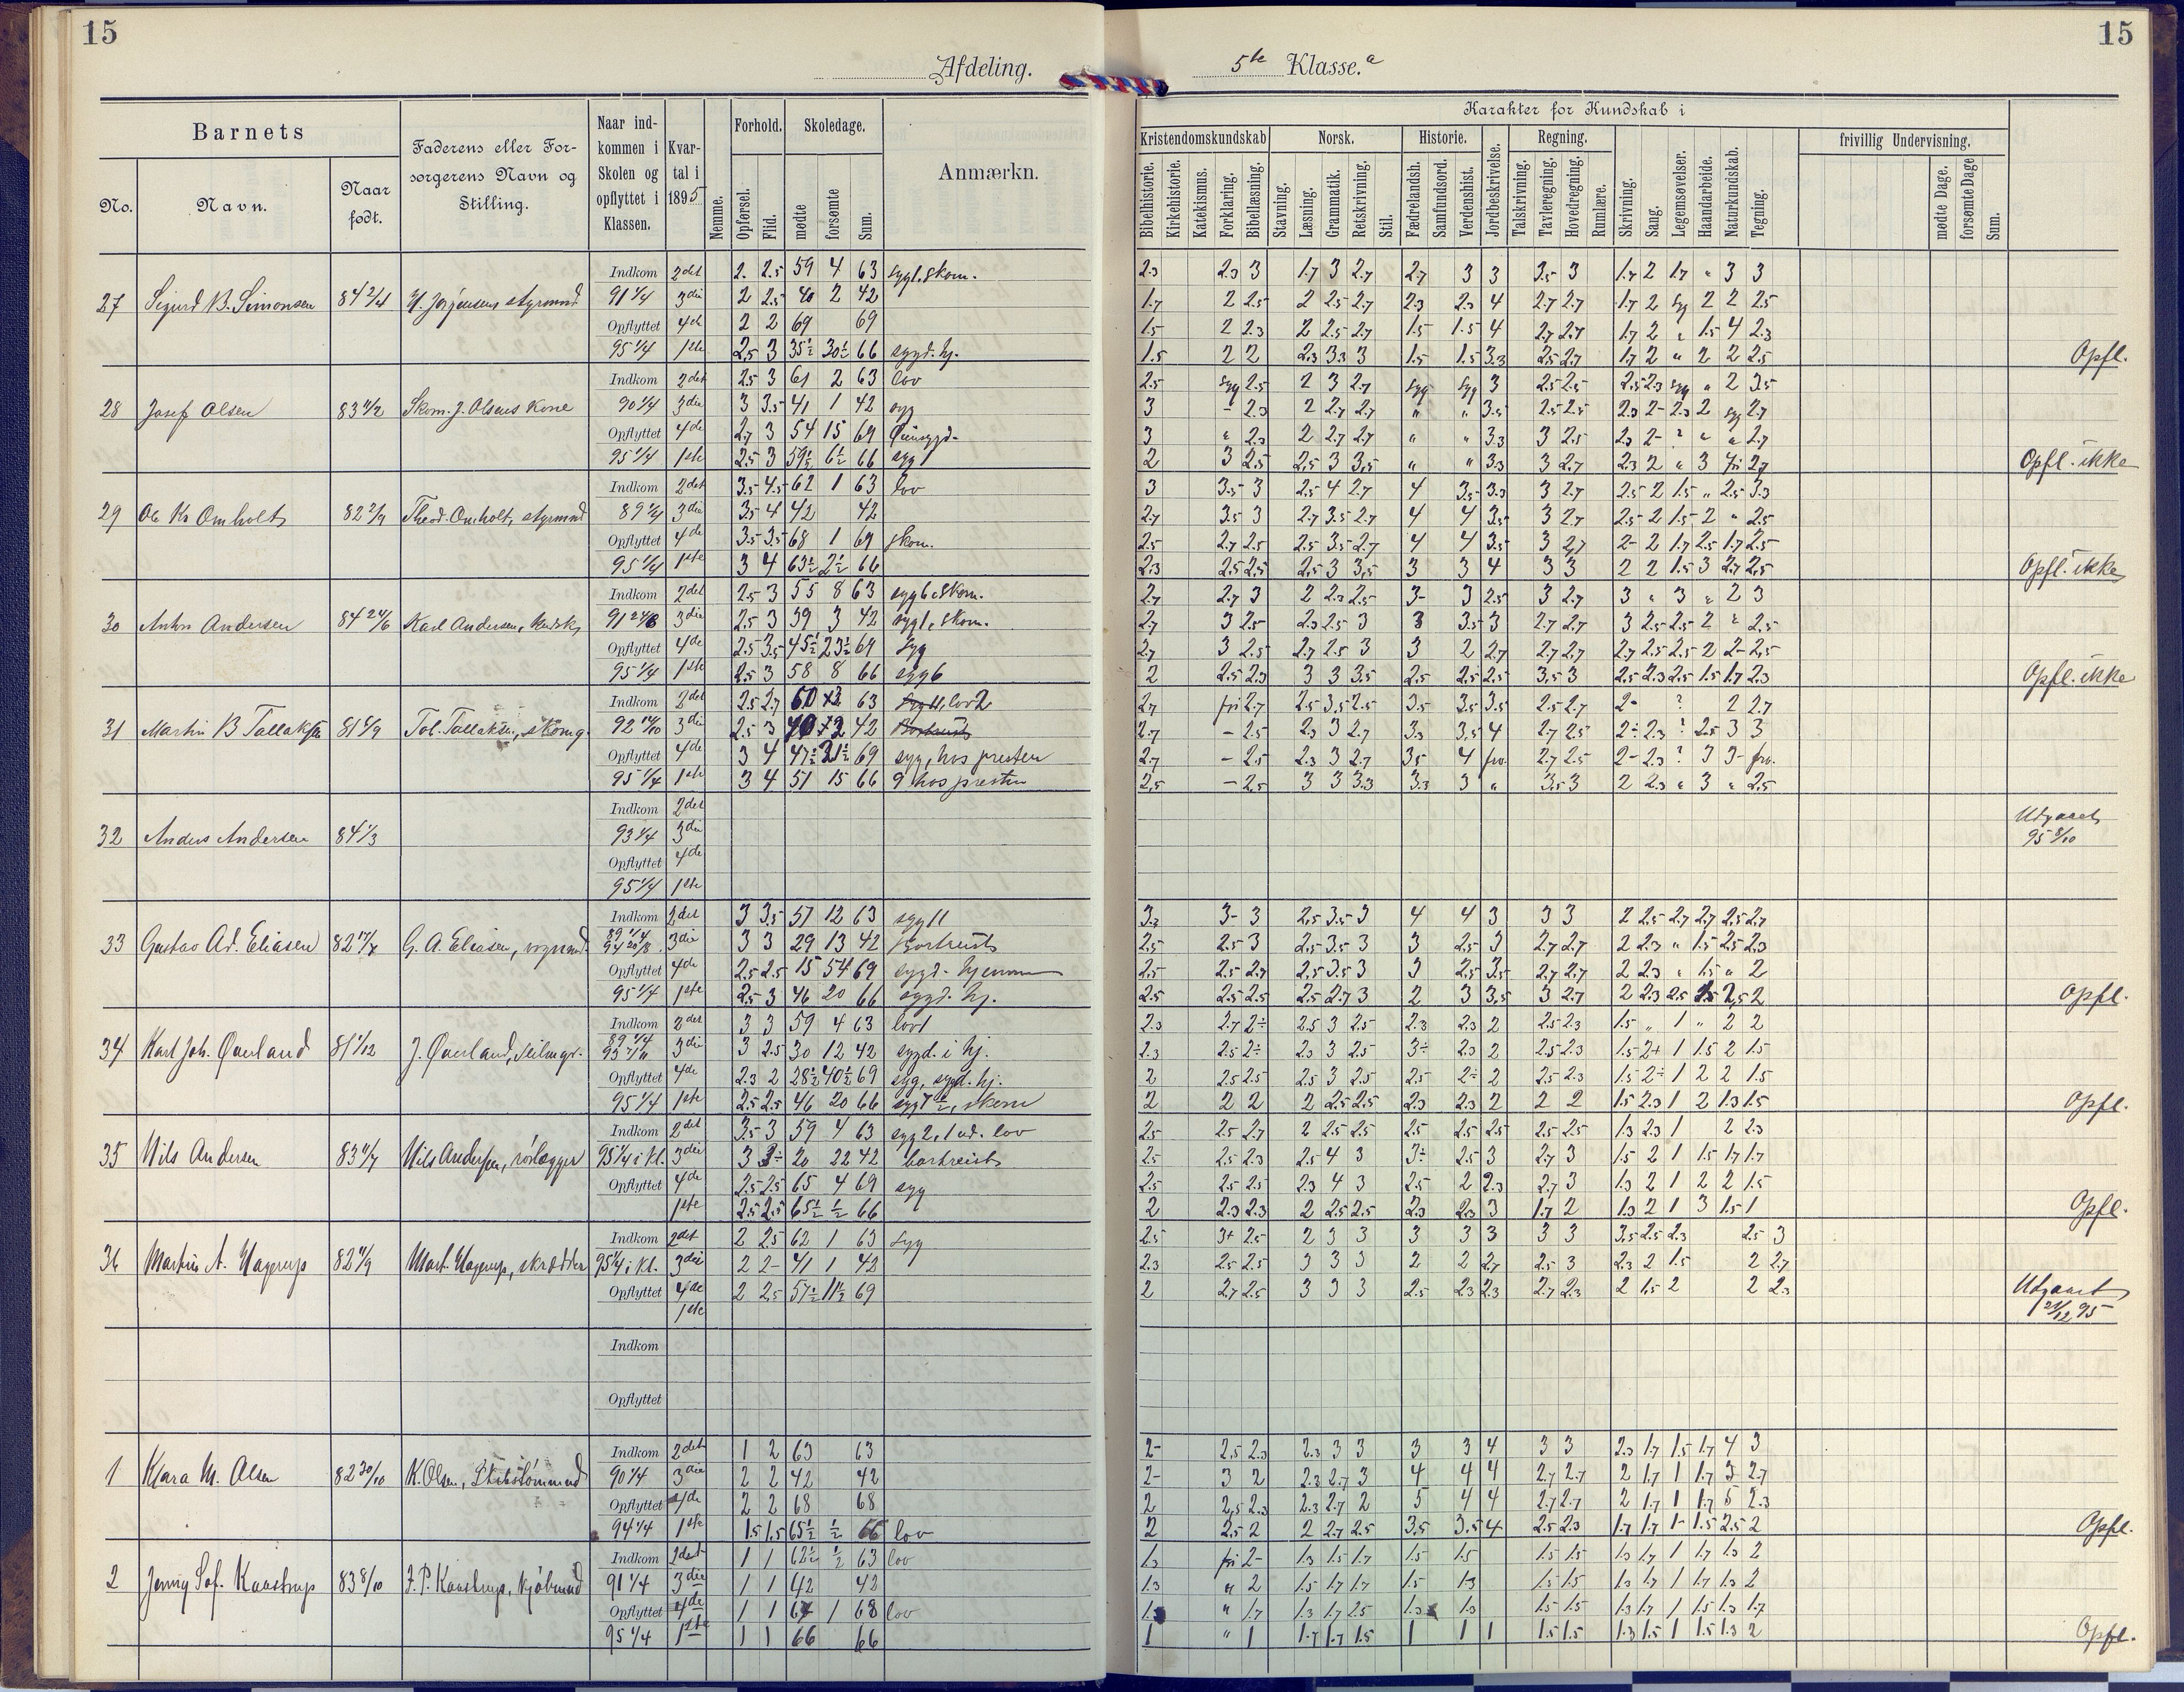 15
15
Afdeling.
5te Klasse.a
Barnets
No.
Navn.
Naar født.
Faderens eller Forsørgerens Navn og Stilling.
Naar indkommen i Skolen og opflyttet i Klassen.
Kvartal i 1895
Nemme.
Forhold.
Opførsel.
Flid.
Skoledage.
mødte
forsømte
Sum.
Anmærkn.
Karakter for Kundskab i
Kristendomskundskab
Bibelhistorie.
Kirkehistorie.
Katekismus.
Forklaring.
Bibellæsning.
Norsk.
Stavning.
Læsning.
Grammatik.
Retskrivning.
Stil.
Historie.
Fædrelandsh.
Samfundsord.
Verdenshist.
Jordbeskrivelse.
Regning.
Talskrivning.
Tavleregning.
Hovedregning.
Rumlære.
Skrivning.
Sang.
Legemsøvelser.
Haandarbeide.
Naturkundskab.
Tegning.
frivillig Undervisning.
mødte Dage.
forsømte Dage
Sum.
27 Sigurd B. Simonsen 84 2/4
Indkom 2det 2. 2.5 59 4 63 syg1. skom. 2.3 2.3 3 1.7 3 2.7 2.7 3 3 3.5 3 1.7 2 1.7 " 3 3
91 1/4 3die 2 2.5 40 2 42 1.7 2 2.5 2 2.5 2.7 2.3 2.3 4 2.7 2.7 1.7 2 syg 2 2 2.5
Opflyttet 4de 2 2 69 69 1.5 2 2.3 2 2.5 2.7 1.5 1.5 4 2.7 2.7 1.7 2 " 1.5 4 2.3
95 1/4 1ste 2.5 3 35½ 30½ 66 sygd. hj. 1.5 2 2 2.3 3.3 3 1.5 1.5 3.3 2.5 2.7 1.7 2 " 2 2 2.5 Opfl.
28 Josef Olsen 83 11/2 Skom. J. Olsens Kone
Indkom 2det 2.5 3 61 2 63 lov 2.5 syg 2.5 2 3 2.7 syg syg 3 2.5 2.5 2.5 2.3 syg " 2 3.5
90 1/4 3die 3 3.5 41 1 42 syg 3 - 2.3 2 2.7 2.7 " " 3.5 2.5 2.5 2.3 2- 2.3 2 syg 2.7
Opflyttet 4de 2.7 3 54 15 69 3 " 2.3 2 2.7 2.7 " " 3.3 3 2.5 2.3 2- ? " " 2.7
95 1/4 1ste 2.5 3 59½ 6½ 66 syg 2 3 2.5 2.5 3 3.5 " " 3.3 3 2.7 2.3 2 " 3 fri 2.7 Opfl. ikke
29 Ole Kr Omholt 82 2/9 Theod. Omholt, styrmnd
Indkom 2det 3.5 4.5 62 1 63 lov 3 3.5 3 2.5 4 2.7 4 3.5 3.3 3 2.7 2.5 2 1.5 " 2.5 3.3
89 1/4 3die 3.5 4 42 42 2.7 3.5 3 2.7 3.5 2.7 4 4 3.5 3 2.7 2.5 2 1.5 2 " 2.5
Opflyttet 4de 3.5 3.5 68 1 69 skom. 2.5 2.7 2.5 2.5 3.5 2.7 4 4 3.5 3 2.7 2- 2 1.7 2.5 1.7 2.5
95 1/4 1ste 3 4 63½ 2½ 66 2.3 2.5 2.5 2.5 3 3.5 3 3 4 3 3 2 2 1.5 3 2.7 2.5 Opfl. ikke
30 Anton Andersen 84 24/6 Karl Andersen,
Indkom 2det 2.5 3 55 8 63 syg6. skom. 2.7 2.7 3 2 2.3 2.5 3- 3 2.5 3 2.7 3 " 3 " 2 3
91 3die 2.5 3 39 3 42 syg1, skom. 2.7 3 2.5 2.3 2.5 3 3 3.5 3 2.7 2.7 3 2.5 2.5 2 " 2.5
Opflyttet 4de 2.5 3.5 45½ 23½ 69 syg 2.7 3 2.5 2.7 2.5 3 3 2 2.7 2.7 2.7 2.7 2.5 2.5 2 2- 2.5
95 1/4 1ste 2.5 3 58 8 66 syg6 2 2.5 2.3 3 3 3.5 2.5 2.5 2.5 3.5 3 2.5 2.3 2.5 1.5 1.7 2.3 Opfl. ikke
31 Martin B Tallaksen 81 4/9 Tol. Tallaksen, skomg.
Indkom 2det 2.5 2.7 60 3 63 lov2 2.7 fri 2.7 2.5 3.5 2.5 3.5 3.5 3.5 2.5 2.7 2- ? 2 2.7
92 3die 2.5 3 40 2 42 Bortreist 2.7 - 2.5 2.3 3 2.7 3.3 3.5 4 2.7 2.5 2÷ 2.3 ? 2.5 3 3
Opflyttet 4de 3 4 47½ 21½ 69 syg, hos presten 2.7 - 2.5 2.3 3 2.7 3.5 4 frv. 2.7 2.5 2- 2.3 ? 3 3- frv.
95 1/4 1ste 3 4 51 15 66 9 hos presten 2.5 - 2.5 3 3 3.3 3.3 3 " 3.5 3 2 2.3 " 3 " 2.5
32 Anders Andersen 84 1/3
Indkom 2det
93 1/4 3die
Opflyttet 4de
95 1/4 1ste
Udgaaet
95 8/10
33 Gustav Ad. Eliasen 82 17/7 G. A. Eliasen, vognmd.
Indkom 2det 3 3.5 51 12 63 syg11 3.2 3- 3 2.5 3.5 3 4 4 3 3 3 2 2.5 2.7 2.7 2.5 2.7
89 1/4 94 20/8 3die 3 3 29 13 42 Bortreist 2.5 2.5 3 2.5 3.5 3 3 2.5 3 2.7 2.7 2 2.3 " 1.5 2.5 2.3
Opflyttet 4de 2.5 2.5 15 54 69 sygd. hjemme 2.5 2.5 2.7 2.5 3.5 3 3 2.5 3.5 2.7 2.7 2 2.3 " 1.5 " 2
95 1/4 1ste 2.5 3 46 20 66 sygd. hj. 2.5 2.5 2.5 2.5 2.7 3 2 3 3.5 3 2.7 2 2.3 2.5 1.5 2.5 2 Opfl.
34 Karl Joh. Øverland 81 1/12 J. Øverland, Seilmgr.
Indkom 2det 3 3 59 4 63 lov1 2.3 2.7 2÷ 2.5 3 2.5 2.3 2.3 2 2.5 2.3 1.5 " 1 " 2 2
89 1/4 3die 3 2.5 30 12 42 sygd. i hj. 2.3 2.5 2÷ 2.3 3 2.5 3÷ 2.3 2 2.5 2.3 1.5 2+ 1 1.5 2 1.5
Opflyttet 4de 2.3 2 28½ 40½ 69 syg, sygd. hj. 2 2.5 2.5 2.5 3 2.5 2.5 2÷ 2 2.5 2.3 1.5 2÷ 1 2 2 1.5
95 1/4 1ste 2.5 2.5 46 20 66 2 2 2 2 2.5 2.5 2.3 2.3 2 2 2 1.5 2.3 1 2 1.3 1.5 Opfl.
35 Nils Andersen 83 11/7 Nils Andersen, rørlægger
Indkom 2det 3.5 3 59 4 63 syg2, 1 ud. lov 2.5 2.5 2.7 2 2.5 2.5 2.5 2.5 2.5 2.5 2.5 1.3 2.3 1 2 2.3
95 1/4 i Kl. 3die 3 3÷ 20 22 42 bortreist 2.5 2.5 2.3 2.5 4 3 3÷ 2.5 3 2.7 3 1.5 2 1 1.5 1.7 1.7
Opflyttet 4de 2.5 2.5 65 4 69 syg 2.5 2.5 2.5 2.3 4 3 2.5 2 2.3 2.7 3 1.3 2 1 2 2 1.5
1ste 2.5 2.5 65½ ½ 66 2 2.3 2.3 2 2.5 2.5 2.3 2.3 3 1.7 2 1.3 2 1 3 1.5 1 Opfl.
36 Martin A. Hagerup 82 11/9 Mart. Hagerup, skrædder
Indkom 2det 2 2.5 62 1 63 syg 2.5 3+ 2.5 2 3 3 3 3 3 3 3 3.5 2.5 2.3 2.5 3
95 1/4 i Kl. 3die 2 2- 41 1 42 2.3 2.5 2.5 3 3 3 2 2 2.7 2.5 3 2.3 2 1.5 2 2.7
Opflyttet 4de 2 2.5 57½ 11½ 69 2 2.7 2.5 3 3 3 2.5 2.3 2.3 2.7 2.3 2 1.5 2 2 2.3 Udgaaet
1ste 21/12 95
Indkom
Opflyttet
1 Klara M. Olsen 82 30/10 K. Olsen,
Indkom 2det 1 2 63 63 2- 2.5 2.3 2.3 3 3 3 3 4 3 3 2.3 1.7 1.5 1.7 4 3
90 1/4 3die 2 2 42 42 2- 3 2 2.3 2.7 3 4 4 4 2.7 2.7 2 1.7 1 1.7 3 2.7
Opflyttet 4de 2 2 68 68 2 2.5 2.3 2.3 2.7 2 5 4 4 2.7 2.7 2 1.7 1 1.7 5 2.3
94 1/4 1ste 1.5 1.5 65½ ½ 66 lov 2 2.5 2 2 2.7 2.5 3.5 3.5 4 2.5 2.3 1.7 1.7 1- 1.5 2.5 2 Opfl.
2 Jenny Sof. Kaastrup 83 8/10 J. P. Kaastrup, kjøbmand
Indkom 2det 1 1 62½ ½ 63 lov 1.3 fri 2- 1.3 1.5 1.7 1.5 1.5 1.5 1.5 1.3 1.7 1 1.7 1.3 2
91 1/4 3die 1 1 42 42 1.3 " 2 1.5 1.7 1.7 1.5 1.3 1.5 1.5 1.3 1.7 1 1.7 1.3 2
Opflyttet 4de 1 1 67 1 68 lov 1.3 " 1.7 1.3 1.7 2.5 1.3 1.3 1.5 1.5 1.3 1.7 1 1.5 1.3 1.7
95 1/4 1ste 1 1 66 66 1 " 1 1.7 1.7 1.5 1 1 1 1.5 1.5 1.3 1.5 1 1.5 1.3 2 Opfl.